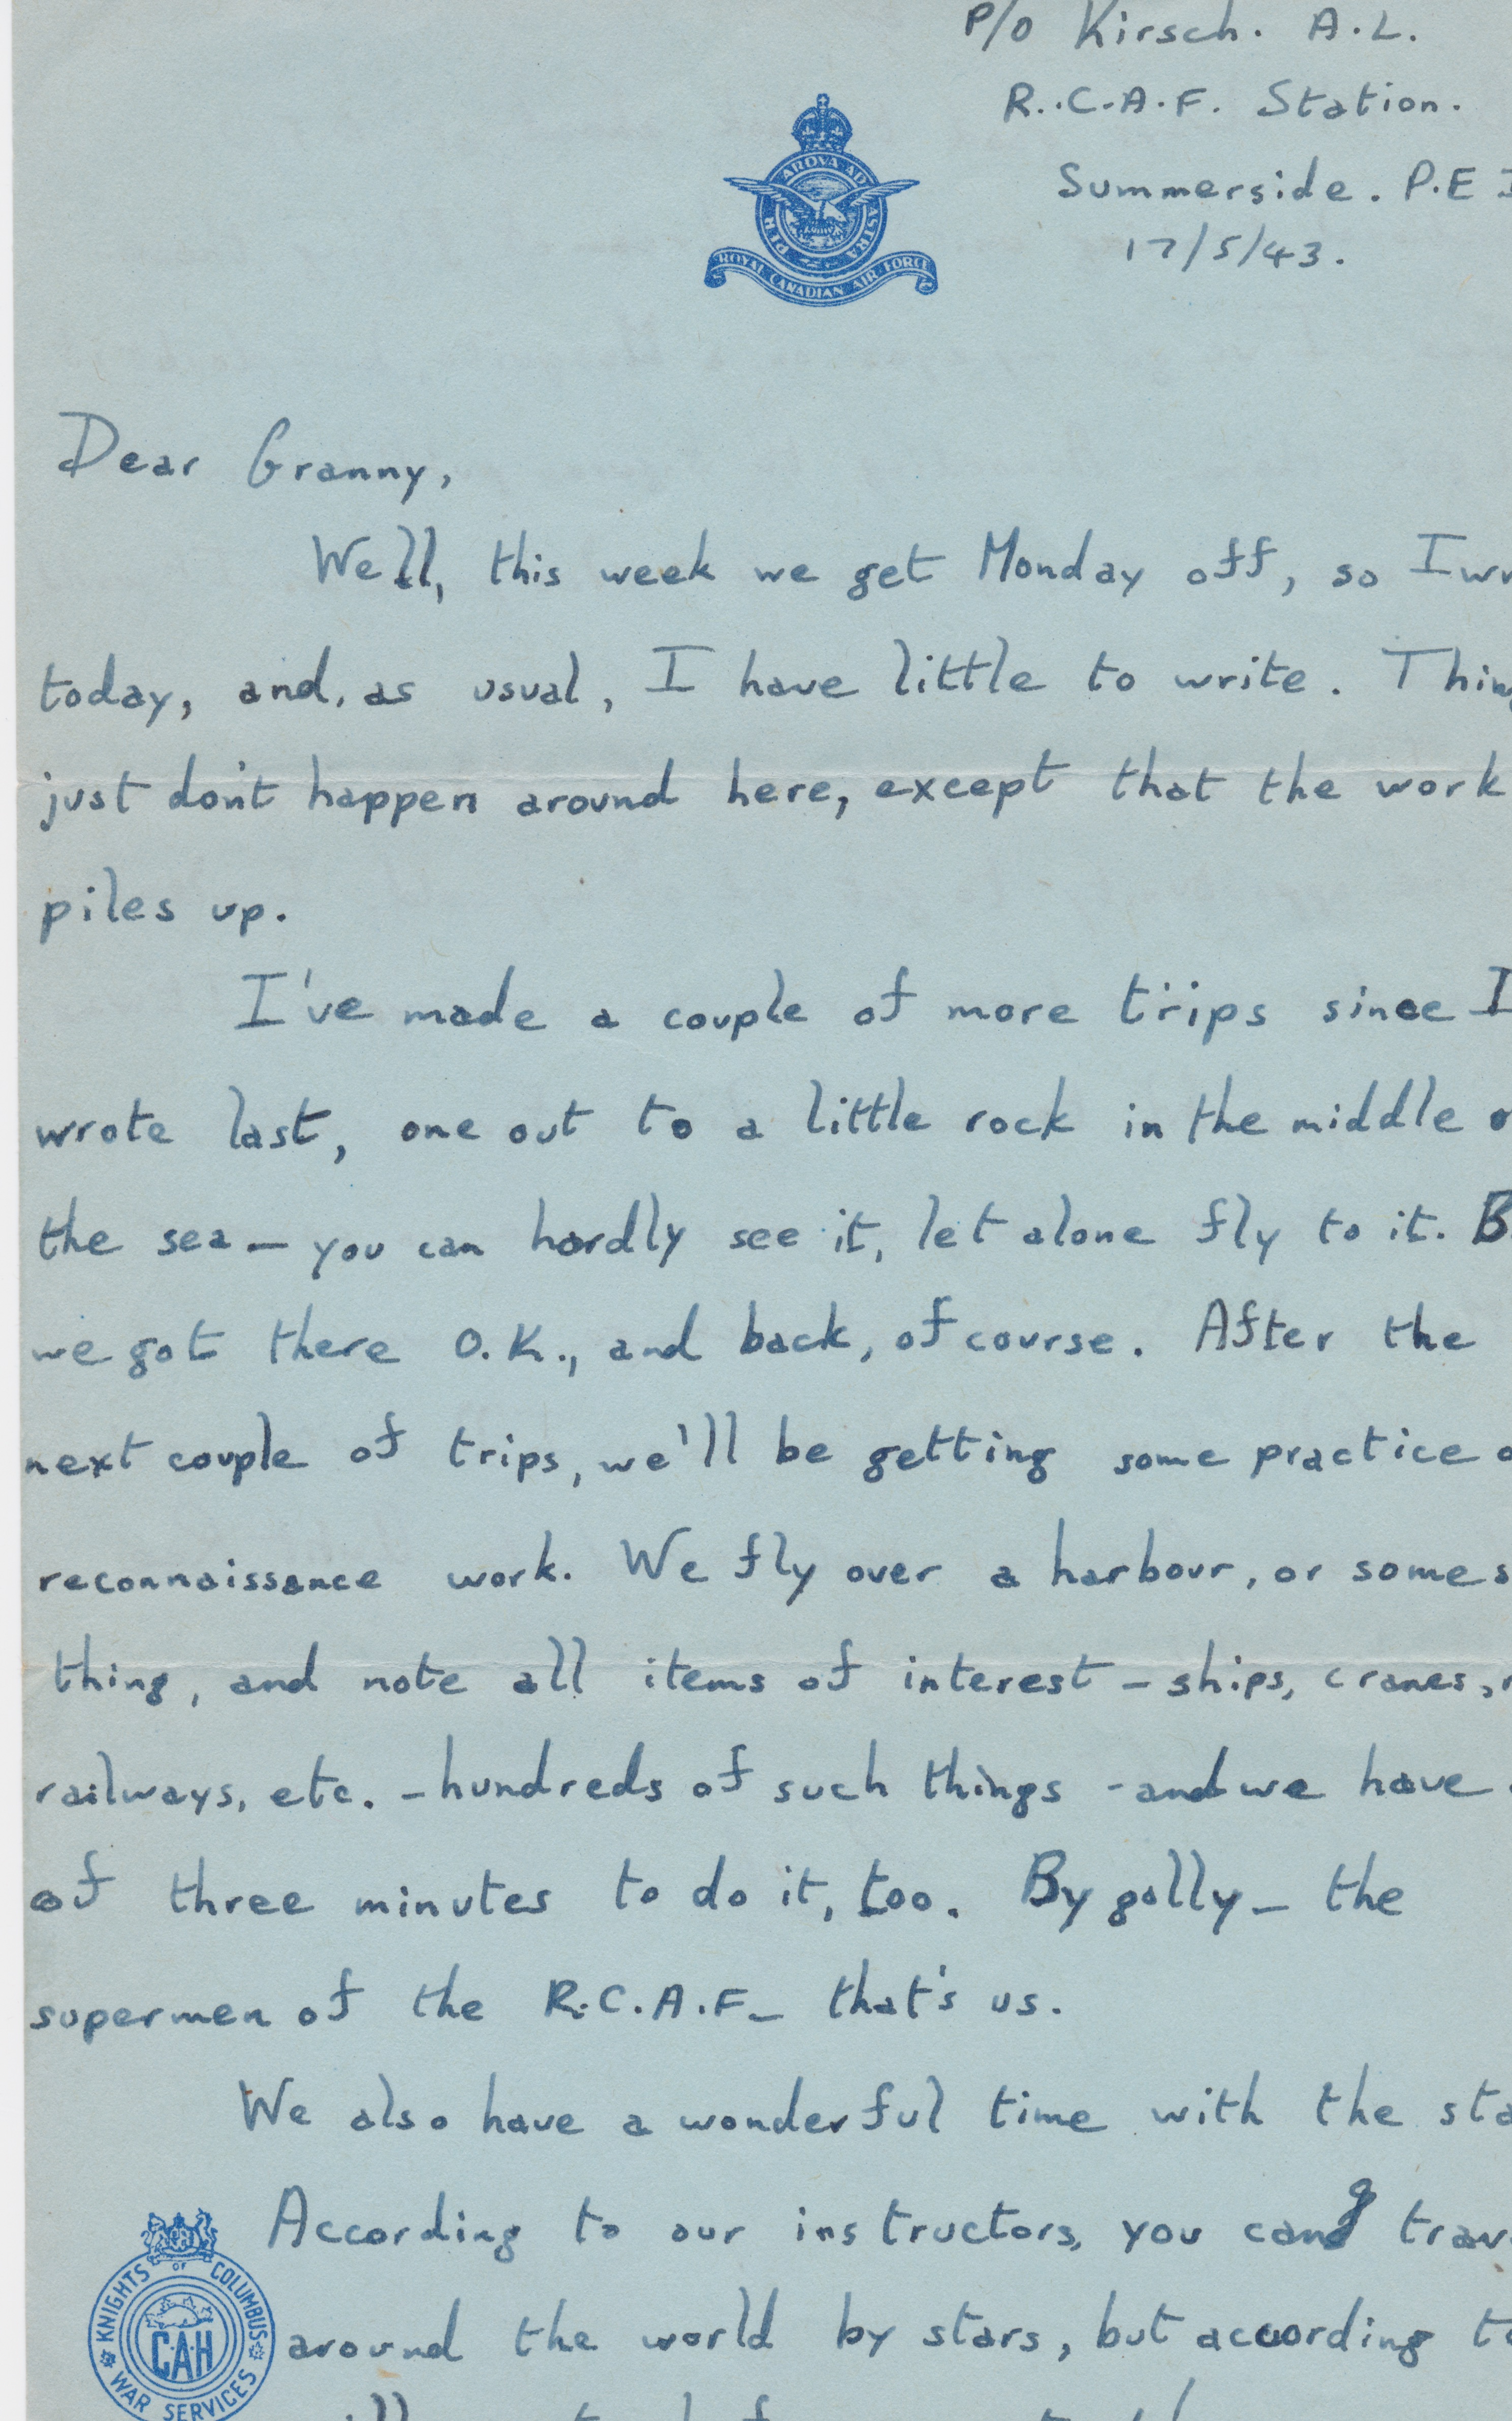 P/O Kirsch. A.L.
R.C.A.F. Station.
Summerside. P.E
17/5/43.
PER ARDVA AD ASTRA
ROYAL CANADIAN AIR FORCE
Dear Granny,
Well, this week we get Monday off, so I
today, and, as usual, I have little to write.
just don't happen around here, except that the work
piles up.
I've made a couple of more trips since I
wrote last, one out to a little rock in the middle
the sea – you can hardly see it, let alone fly to it.
we got there O.K., and back, of course. After the
next couple of trips, we'll be getting some practice
reconnaissance work. We fly over a harbour, or some
thing, and note all items of interest – ships, cranes,
railways, etc. – hundreds of such things - and we have
of three minutes to do it, too. By golly – the
supermen of the R.C.A.F. – that's us.
We also have a wonderful time with the
According to our instructors, you can
around the world by stars, but according
KNIGHTS OF COLUMBUS
C.A.H
WAR SERVICES